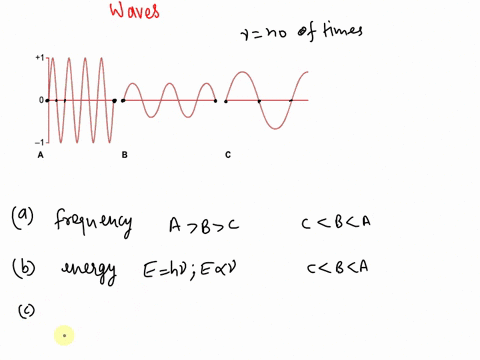 Waves
ν = no of times
+1
0
−1
A B C
(a) frequency A > B > C C < B < A
(b) energy E = hν ; E ∝ ν C < B < A
(c)